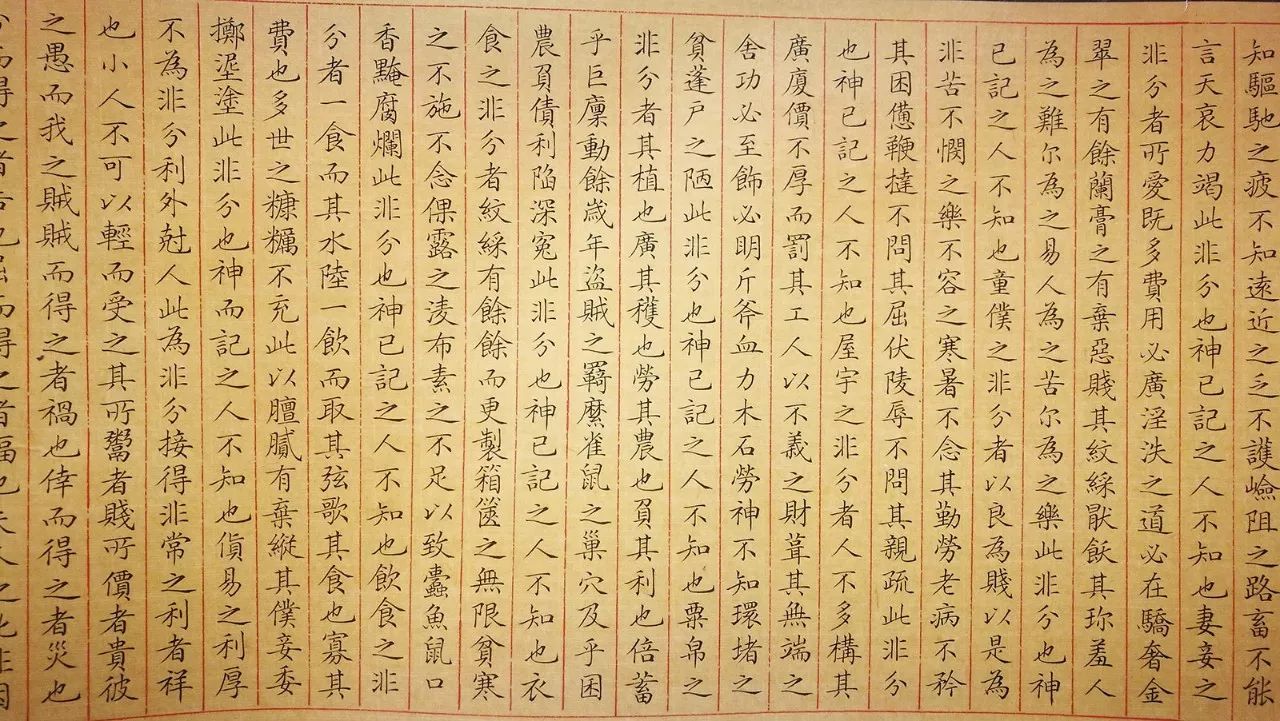 知驅馳之疲不知遠近之乏不護嶮阻之路畜不能
言天哀力竭此非分也神已記之人不知也妻妾之
非分者所愛既多費用必廣淫泆之道必在驕奢金
翠之有餘蘭膏之有棄惡賤其紋綵猒飫其珎羞人
為之難尔為之易人為之苦尔為之樂此非分也神
已記之人不知也童僕之非分者以良為賤以是為
非苦不憫之樂不容之寒暑不念其勤勞老病不矜
其困憊鞭撻不問其屈伏陵辱不問其親疏此非分
也神已記之人不知也屋宇之非分者人不多構其
廣廈價不厚而罰其工人以不義之財葺其無端之
舍功必至飾必明斤斧血力木石勞神不知環堵之
貧蓬戶之陋此非分也神已記之人不知也粟帛之
非分者其植也廣其穫也勞其農也負其利也倍蓄
乎巨廩動餘歲年盜賊之羇縻雀鼠之巢穴及乎困
農負債利陷深冤此非分也神已記之人不知也衣
食之非分者紋綵有餘餘而更製箱篋之無限貧寒
之不施不念倮露之凌布素之不足以致蠹魚鼠口
香黤腐爛此非分也神已記之人不知也飲食之非
分者一食而其水陸一飲而取其弦歌其食也寡其
費也多世之糠糲不充此以膻膩有棄縱其僕妾委
擲埿塗此非分也神而記之人不知也貨易之利厚
不為非分利外尅人此為非分接得非常之利者祥
也小人不可以輕而受之其所鬻者賤所價者貴彼
之愚而我之賊賊而得之者禍也倖而得之者災也